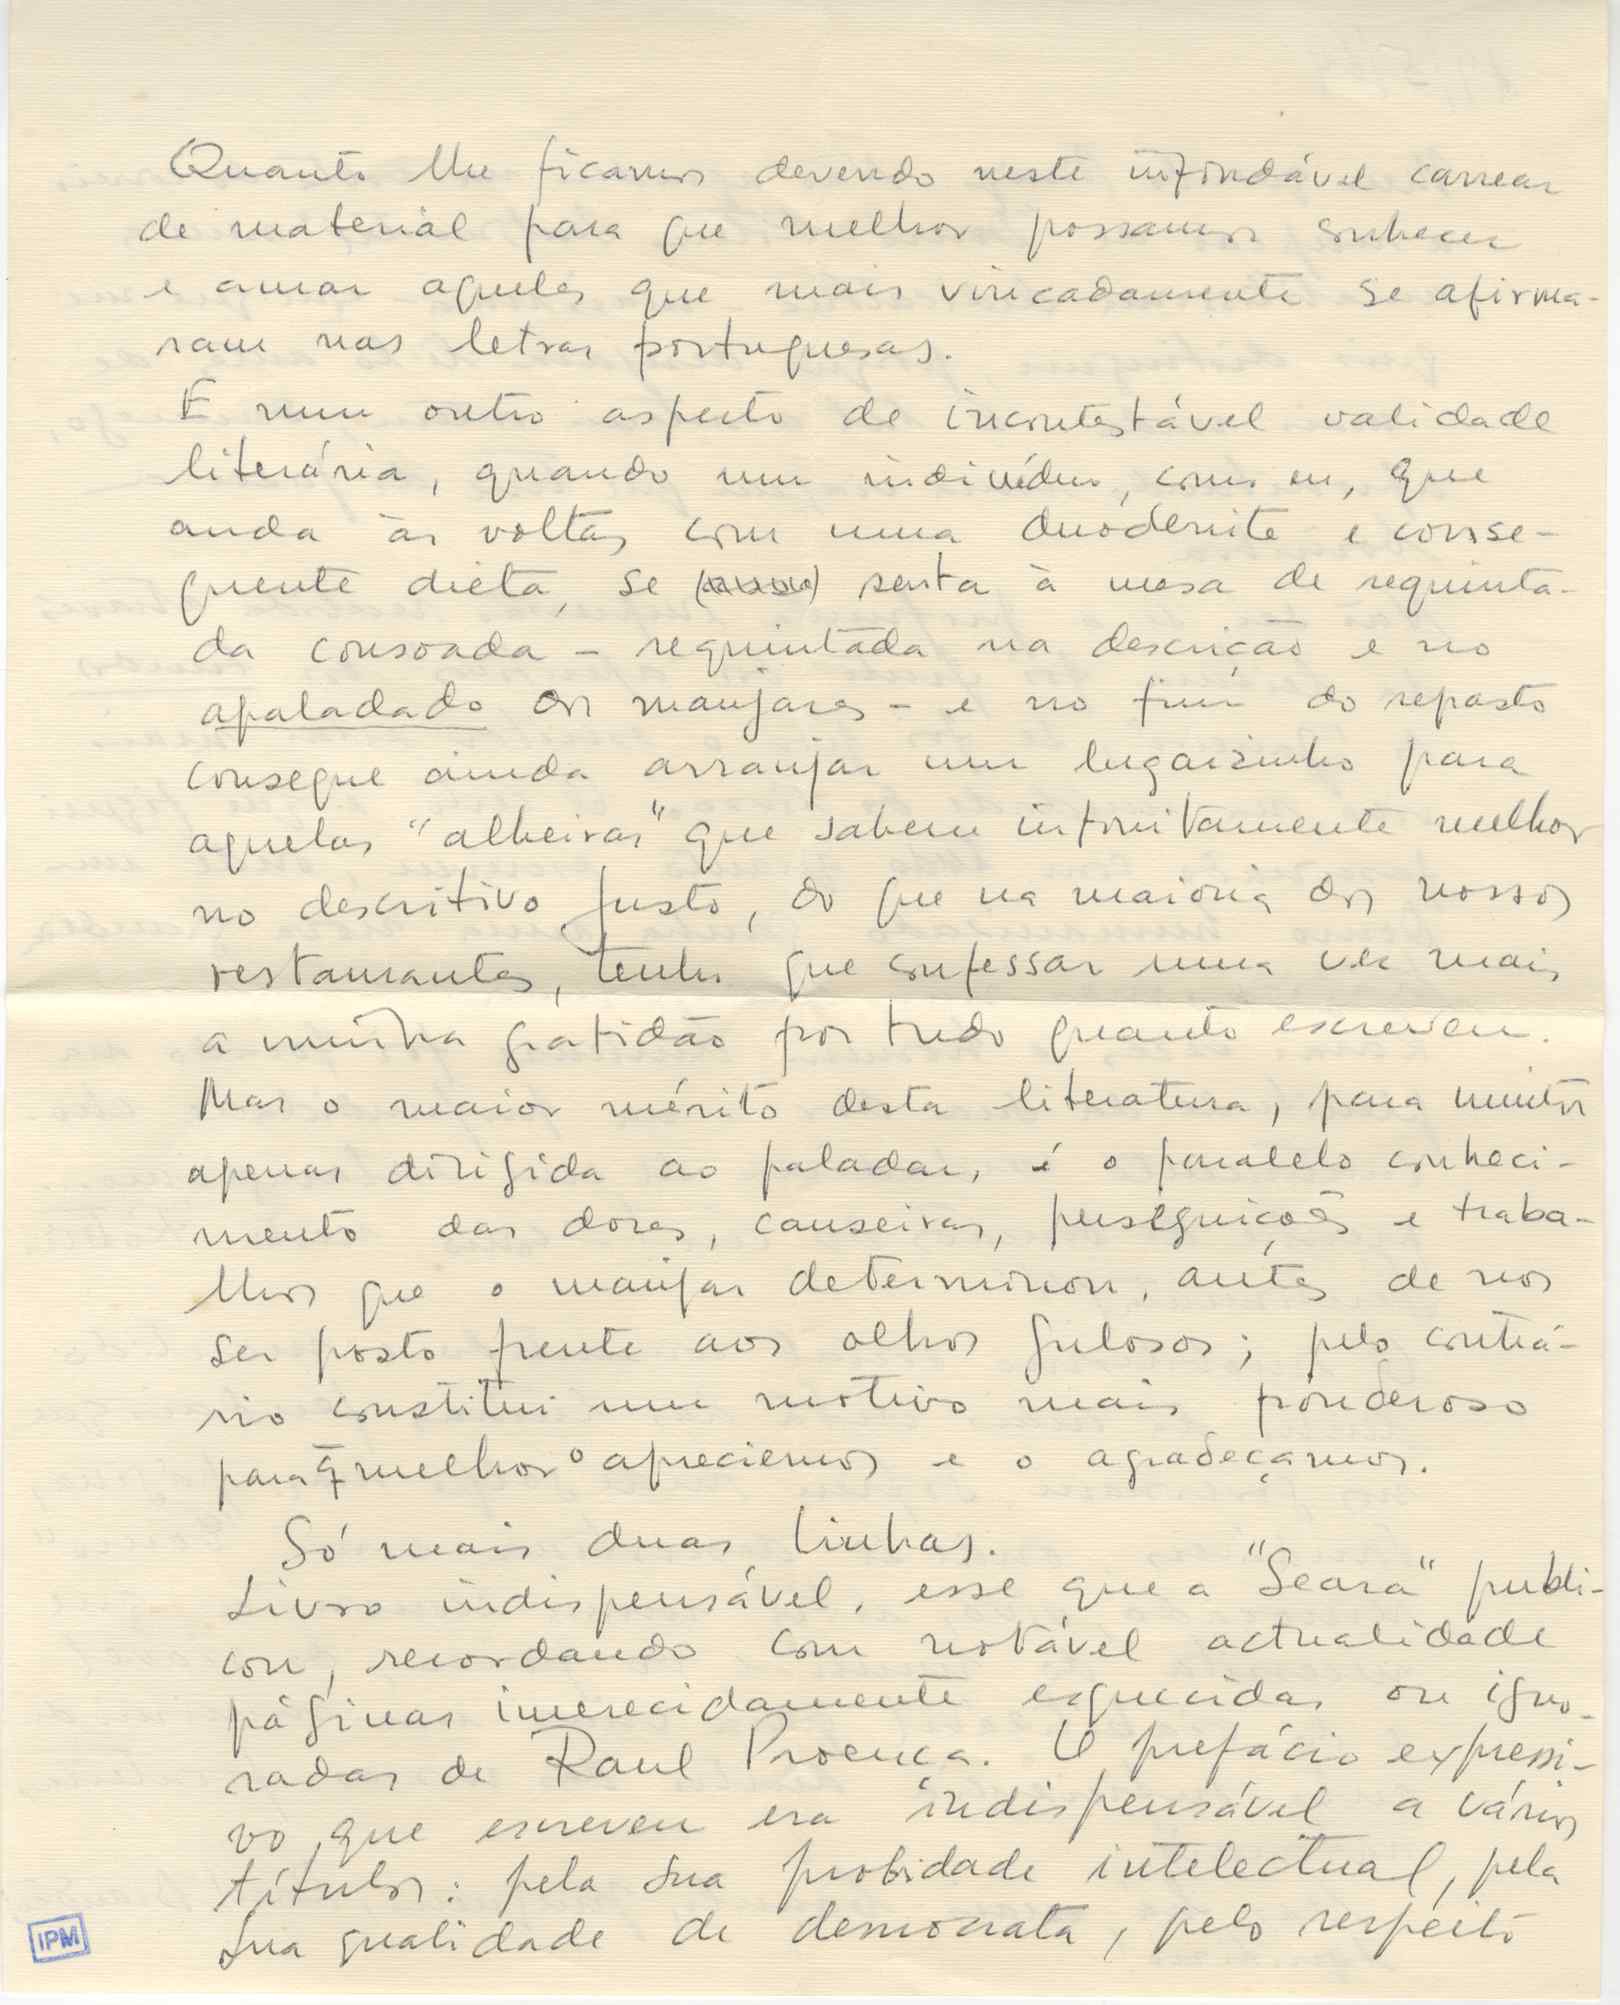 Quanto lhe ficamos devendo neste infindável carrear
de material para que melhor possamos conhecer
e amar aqueles que mais vincadamente se afirma-
ram nas letras portuguesas.
E num outro aspecto de incontestável validade
literária, quando um indivíduo, como eu, que
anda às voltas com uma duodenite e conse-
quente dieta, se senta à mesa de requinta-
da consoada – requintada na descrição e no
apaladado dos manjares – e no fim do repasto
consegue ainda arranjar um lugarzinho para
aquelas "alheiras" que sabem infinitamente melhor
no descritivo justo, do que na maioria dos nossos
restaurantes, tenho que confessar uma vez mais
a minha gratidão por tudo quanto escreveu.
Mas o maior mérito desta literatura, para muitos
apenas dirigida ao paladar, é o paralelo conheci-
mento das dores, canseiras, perseguições e traba-
lhos que o manjar determinou, antes de nos
ser posto frente aos olhos gulosos; pelo contrá-
rio constitui um motivo mais ponderoso
para q̄ melhor o apreciemos e o agradeçamos.
Só mais duas linhas.
Livro indispensável, esse que a "Seara" publi-
cou, recordando com notável actualidade
páginas imerecidamente esquecidas ou igno-
radas de Raul Proença. O prefácio expressi-
vo, que escreveu era indispensável a vários
títulos: pela sua probidade intelectual, pela
sua qualidade de democrata, pelo respeito
IPM